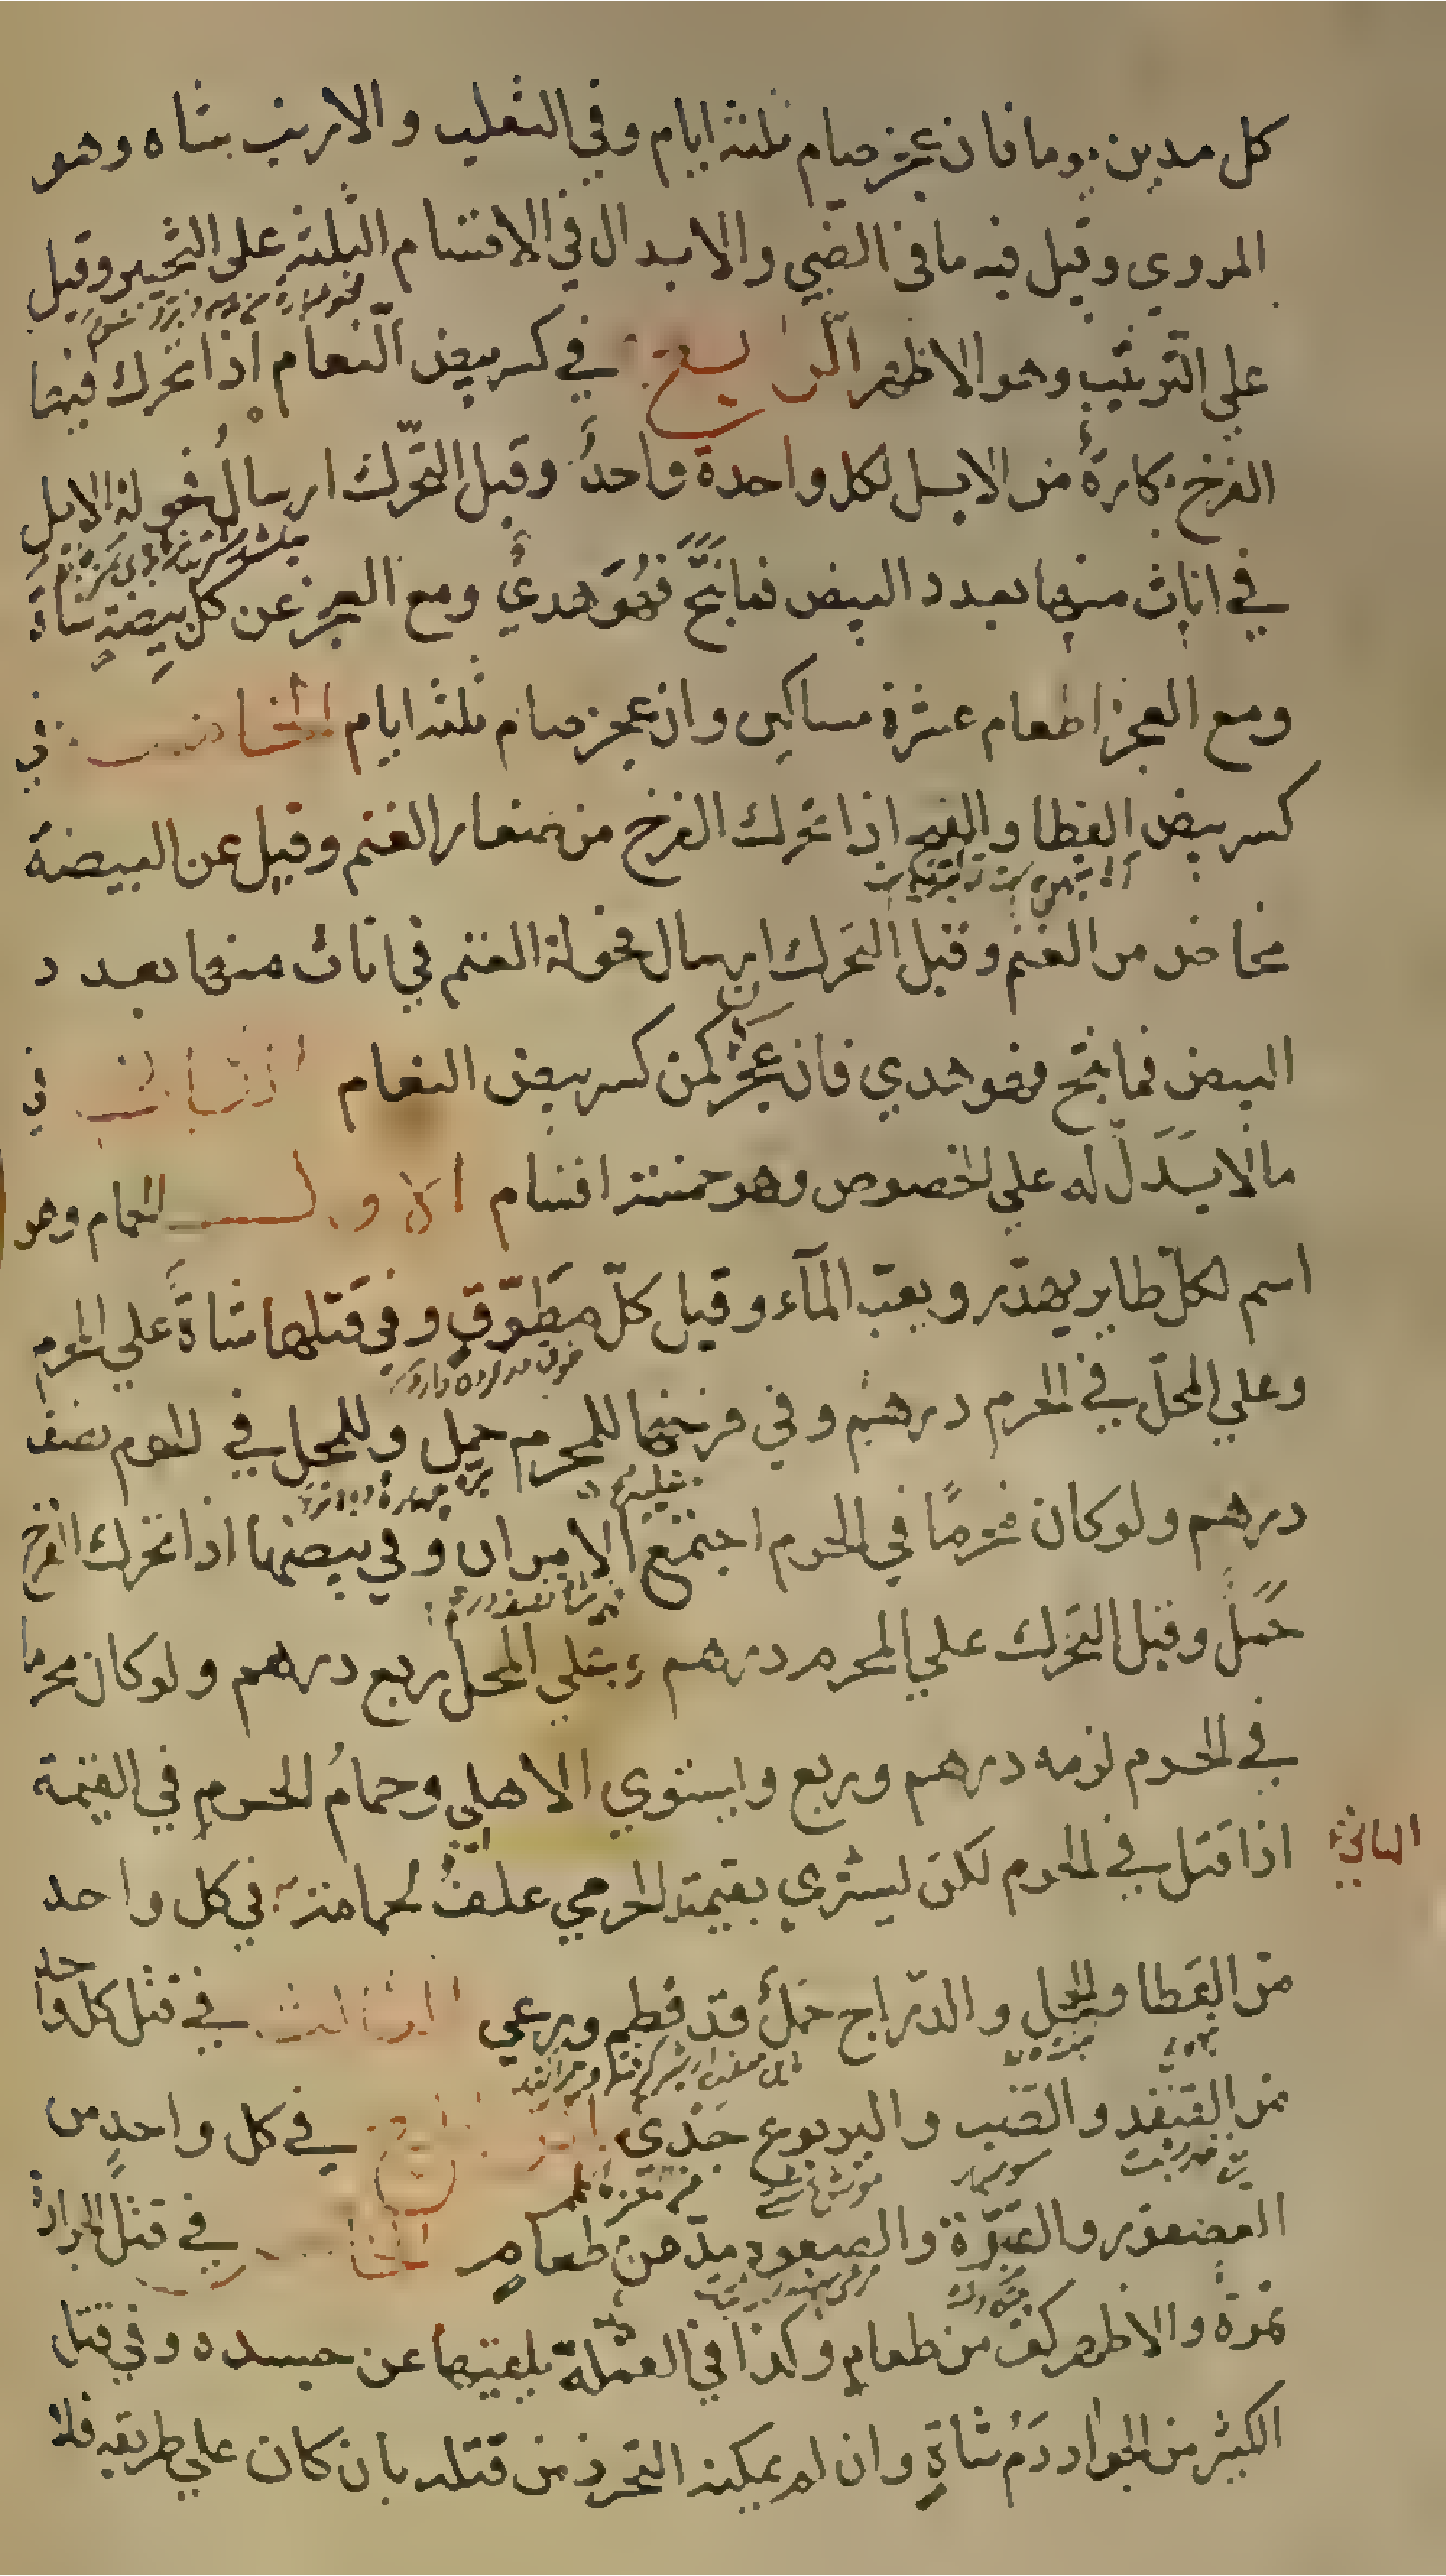 كل مدين يوما فان عجز صام ثلثة ايام وفي الثعلب والارنب شاه وهو
المروي وقيل فيه ما في الضبي والابدال في الاقسام الثلثة على التخيير وقيل
علي الترتيب وهو الاظهر الرابع في كسر بيض النعام اذا تحرك فيها
الفرخ بكارة من الابل لكل واحدة واحد وقبل التحرك ارسال فحولة الابل
في اناث منها بعدد البيض فما نتج فهو هدي ومع العجز عن كل بيضة شاة
ومع العجز اطعام عشرة مساكين وان عجز صام ثلثة ايام الخامس في
كسر بيض القطا والقبج اذا تحرك الفرخ من صغار الغنم وقيل عن البيضة
مخاض من الغنم وقبل التحرك ارسال فحولة الغنم في اناث منها بعدد
البيض فما نتج فهو هدي فان عجز كمن كسر بيض النعام الثاني في
ما لا بدل له علي الخصوص وهو خمسة اقسام الاول الحمام وهو
اسم لكل طاير يهدر ويعب المآء وقيل كل مطوق وفي قتلها شاة علي المحرم
وعلي المحل في الحرم درهم وفي فرخها للمحرم حمل وللمحل في الحرم نصف
درهم ولو كان محرما في الحرم اجتمع الامران وفي بيضها اذا تحرك الفرخ
حمل وقبل التحرك علي المحرم درهم وعلي المحل ربع درهم ولو كان محرما
في الحرم لزمه درهم وربع وايستوي الاهلي وحمام الحرم في القيمة
اذا قتل في الحرم لكن ليشتري بقيمة الحرمي علف لحمامته في كل واحد
الثاني
من القطا والحجل والدراج حمل قد فطم ورعي الثالث في قتل كل واحد
من القنفد والضب واليربوع جدي الرابع في كل واحد من
العصفور والقبرة والصعوه مد من طعام الخامس في قتل الجراد
تمرة والاظهر كف من طعام وكذا في القملة يلقيها عن جسده وفي قتل
الكثير من الجراد دم شاة وان لم يمكنه التحرز من قتله بان كان علي طريقه فلا